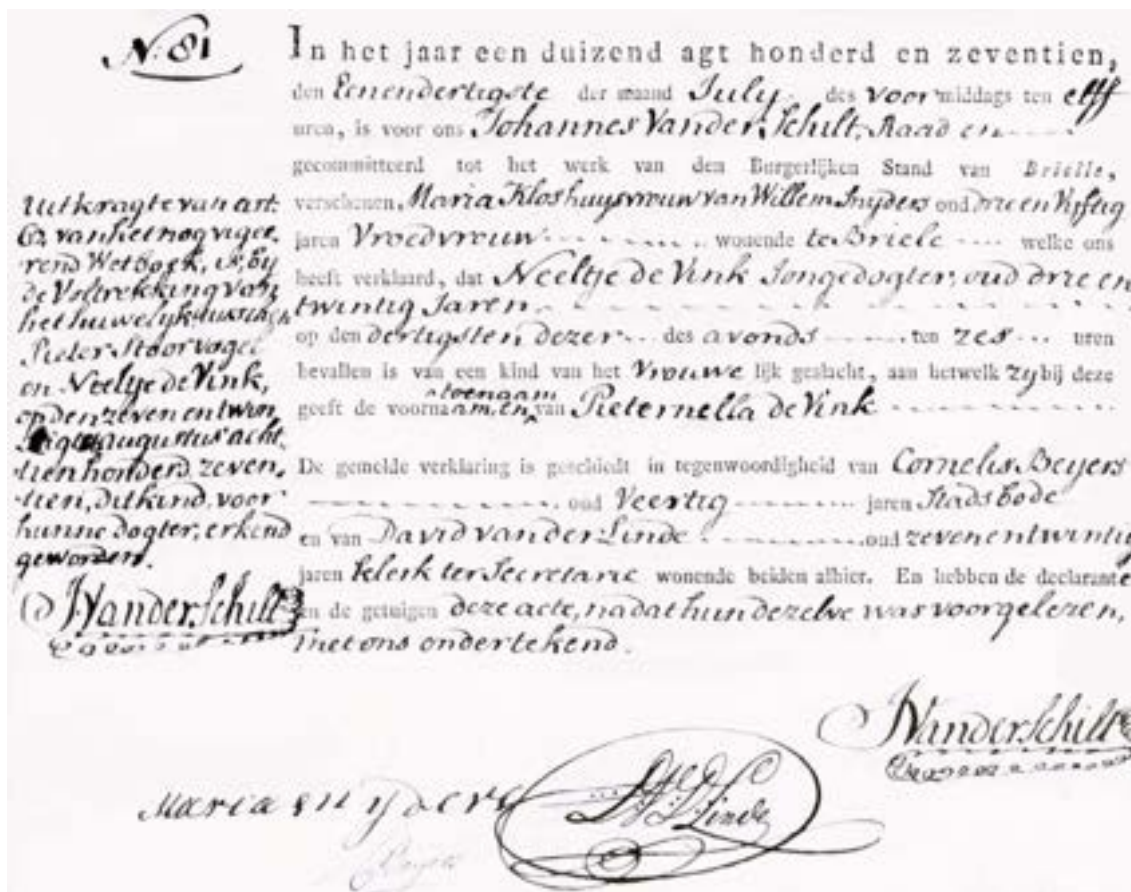 N: 81
In het jaar een duizend agt honderd en zeventien,
den Eenendertigste der maand July des voor middags ten elff
uren, is voor ons Johannes Vander Schilt, Raad en
gecommitteerd tot het werk van den Burgerlijken Stand van Brielle,
verschenen, Maria Klos huysvrouw van Willem Snyders oud drie en Vyftig
jaren Vroedvrouw wonende te Briele welke ons
heeft verklaard, dat Neeltje de Vink Jongedogter, oud drie en
twintig Jaren
op den dertigsten dezer des avonds ten zes uren
bevallen is van een kind van het Vrouwe lijk geslacht, aan hetwelk zy bij deze
geeft de voornaamen en toenaam van Pieternella de Vink
De gemelde verklaring is geschiedt in tegenwoordigheid van Cornelis Beyers
oud Veertig jaren Stadsbode
en van David van der Linde oud zevenentwintig
jaren klerk ter Secretarie wonende beiden alhier. En hebben de declarante
en de getuigen deze acte, na dat hun dezelve was voorgelezen,
met ons ondertekend.
Uitkragte van art:
62 van het nog vigee,
rend Wetboek, is, by
de Voltrekking van
het huwelyk tusschen
Pieter Stoorvogel
en Neeltje de Vink,
op den zeven en twin
tigste augustus acht,
tien honderd zeven,
tien, dit kind, voor
hunne dogter, erkend
geworden.
JVanderSchilt
JVanderSchilt
Maria snyders
DVD Linde
Beyers